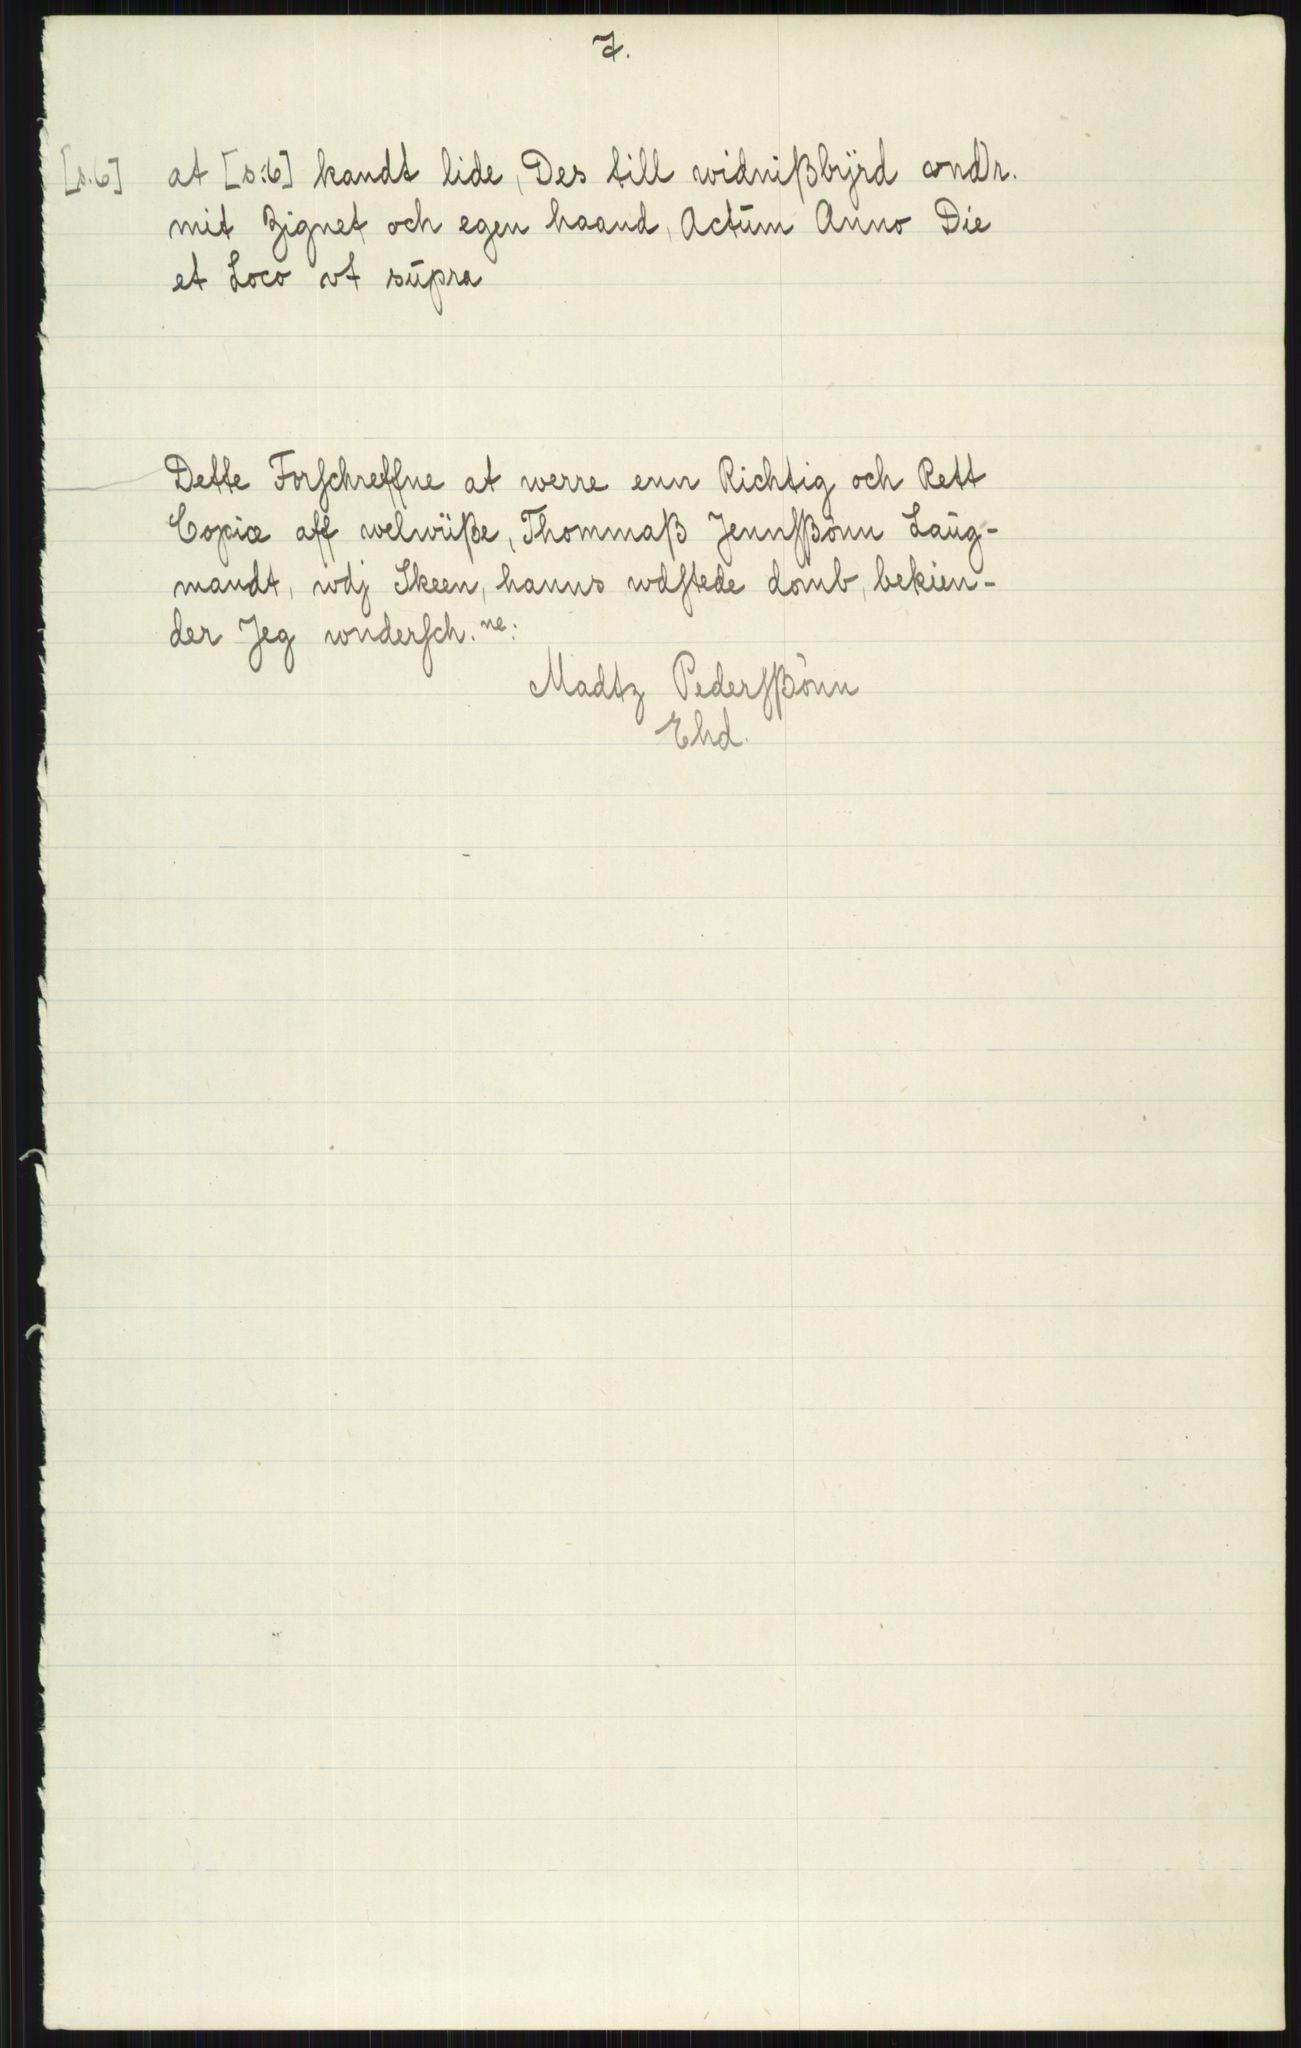 7.
[s.6] at [s:6] kandt lide, Des till widnißbÿrd ondr.
mit Zignet och egen haand, Actūm Anno Die
et Loco vt sūpra
Dette Forschreffne at werre enn Richtig och Rett
Copiæ aff welwüße, Thommaß Jennsßònn Laūg-
mandt, wdj Skeen, hanns wdstede domb, bekien-
der Jeg wndersch. ne:
Madtz Pedersßònn
Ehd.